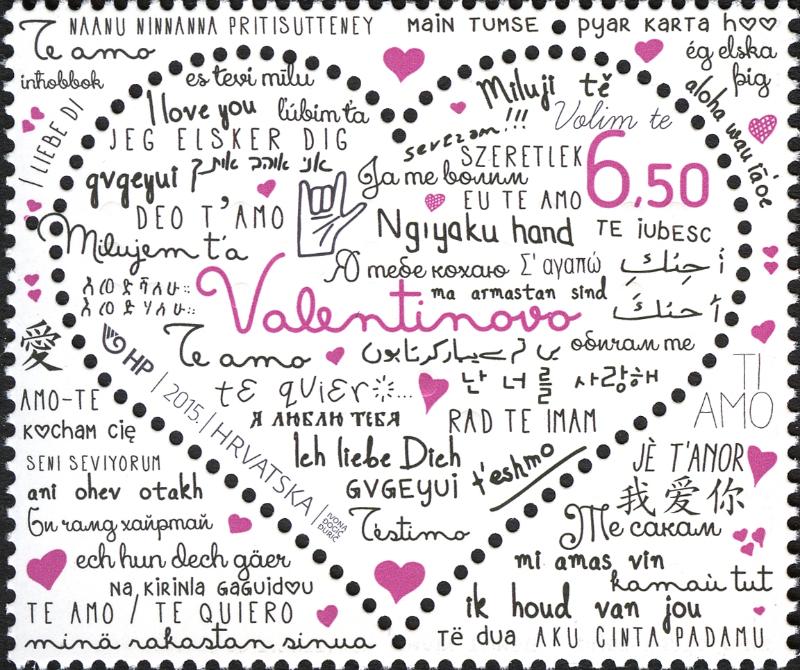 NAANU NINNANNA PRITISUTTENEY
MAIN TUMSE
PYAR KARTA HOO
Te amo
ég elska
þig
inħobbok
es tevi mīlu
Miluji tě
aloha wau iā ʻoe
I LIEBE DI
I love you
ľúbim ťa
Volim te
JEG ELSKER DIG
sevczam!!!
SZERETLEK
6,50
gvgeyui
אני אוהב אותך
Ja те волим
EU TE AMO
DEO T'AMO
Ngiyaku hand
TE iUBESC
Milujem ťa
Я тебе кохаю
Σ'αγαπώ
أحبك
ma armastan sind
Valentinovo
أحبك
愛
HP
Te amo
обичам те
TI
AMO
2015.
HRVATSKA
IVONA
ĐOGIĆ
ĐURIĆ
tE quiEr
난 너를 사랑해
AMO-TE
Я ЛЮБЛЮ ТЕБЯ
RAD TE IMAM
Kocham cię
SENI SEVIYORUM
Ich liebe Dich
JÈ T'ANOR
ani ohev otakh
GVGEYUI
t'eshmo
我爱你
Би чамд хайртай
Téstimo
Те сакам
ech hun dech gäer
mi amas vin
NA KIRINLA GAGUIDOU
kamaù tut
TE AMO / TE QUIERO
ik houd van jou
minä rakastan sinua
Të dua
AKU CINTA PADAMU